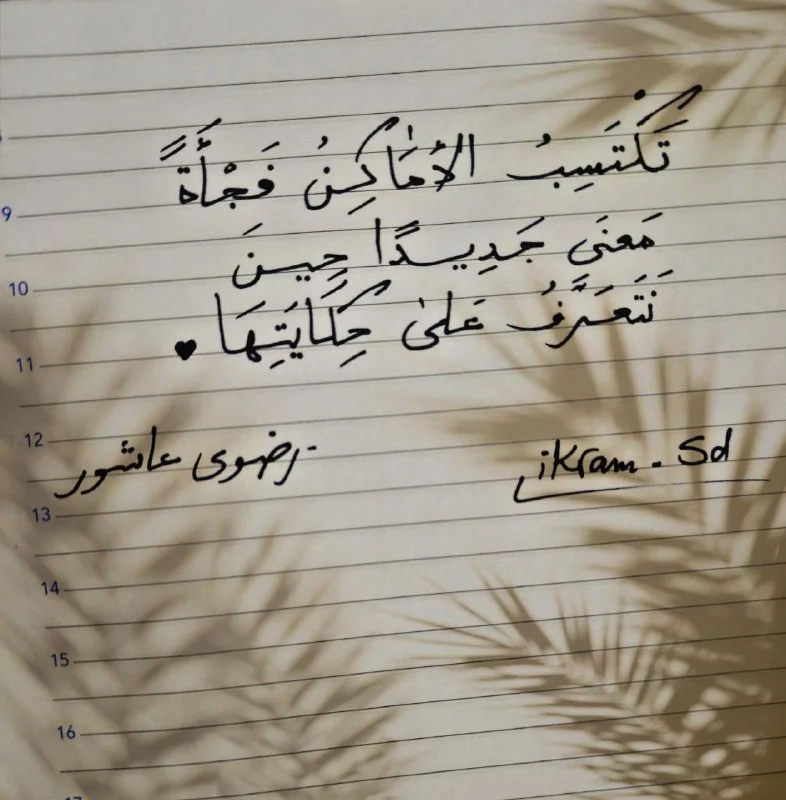 تَكْتَسِبُ الأَمَاكِنُ فَجْأَةً
مَعنَى جَدِيدًا حِينَ
نَتَعَرَّفُ عَلىٰ حِكَايَتِهَا ♥
رضوى عاشور
ikram - Sd
9
10
11
12
13
14
15
16
17